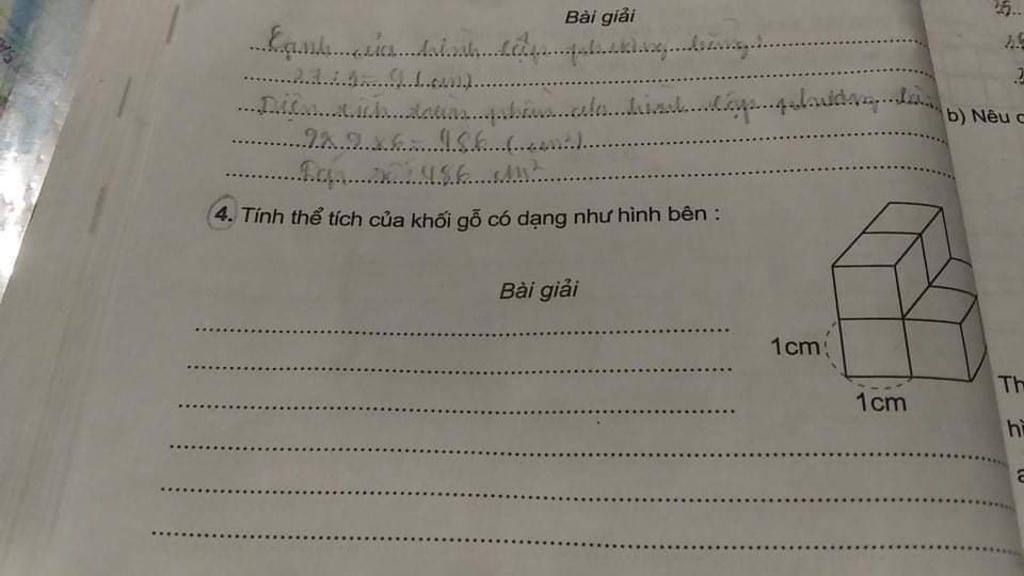 Bài giải
Cạnh của hình lập phương bằng:
27 : 3 = 9 (cm)
Diện tích toàn phần của hình lập phương là
9 x 9 x 6 = 486 (cm²)
Đáp số: 486 cm²
b) Nêu
4. Tính thể tích của khối gỗ có dạng như hình bên :
Bài giải
1cm
1cm
Th